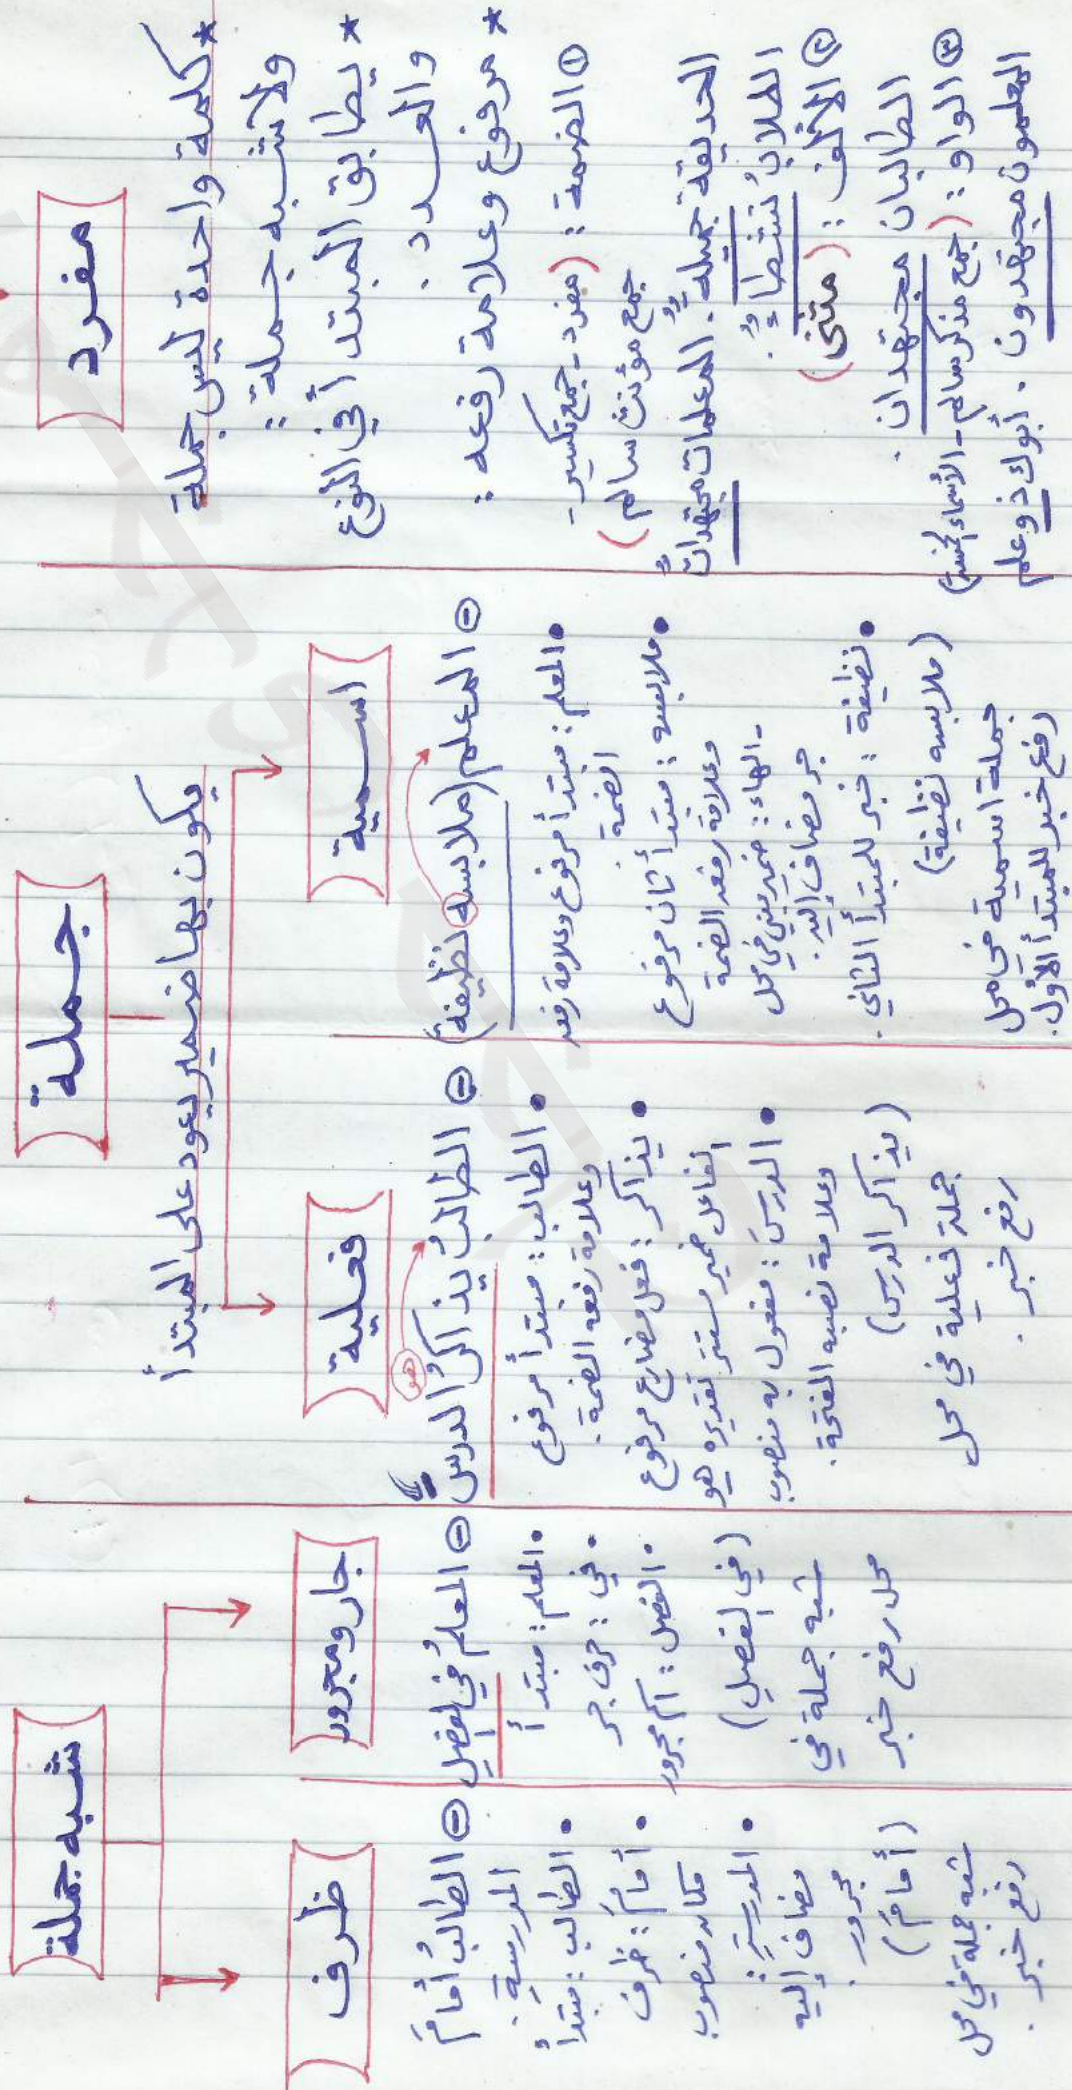 مفرد
* كلمة واحدة ليس جملة
ولا شبه جملة :
* يطابق المبتدأ في النوع
والعدد .
* مرفوع وعلامة رفعه :
① الضمة : (مفرد - جمع تكسير -
جمع مؤنث سالم)
الحديقة جميلةٌ . المعلمات مجتهداتٌ
الطلابُ نشطاءُ .
② الألف : (مثنى)
الطالبان مجتهدان .
③ الواو : (جمع مذكر سالم - الأسماء الخمسة)
المعلمون مجتهدون . أبوك ذو علم
جملة
يكون بها ضمير يعود على المبتدأ
اسمية
المعلم (ملابسه نظيفة)
• المعلم : مبتدأ مرفوع وعلامة رفعه
الضمة
• ملابسه : مبتدأ ثان مرفوع
وعلامة رفعه الضمة
- الهاء : ضمير مبني في محل
جر مضاف إليه .
• نظيفة : خبر للمبتدأ الثاني .
(ملابسه نظيفة)
جملة اسمية في محل
رفع خبر للمبتدأ الأول .
فعلية
هو
الطالبُ يذاكرُ الدرسَ
• الطالب : مبتدأ مرفوع
وعلامة رفعه الضمة .
• يذاكر : فعل مضارع مرفوع
الفاعل ضمير مستتر تقديره هو
• الدرسَ : مفعول به منصوب
وعلامة نصبه الفتحة .
(يذاكر الدرس)
جملة فعلية في محل
رفع خبر .
شبه جملة
جار ومجرور
المعلمُ في الفصلِ
• المعلم : مبتدأ
• في : حرف جر
• الفصل : اسم مجرور
(في الفصلِ)
شبه جملة في
محل رفع خبر
ظرف
الطالبُ أمامَ
المدرسةِ
• الطالب : مبتدأ
• أمامَ : ظرف
مكان منصوب
• المدرسةِ :
مضاف إليه
مجرور .
(أمامَ)
شبه جملة في محل
رفع خبر .